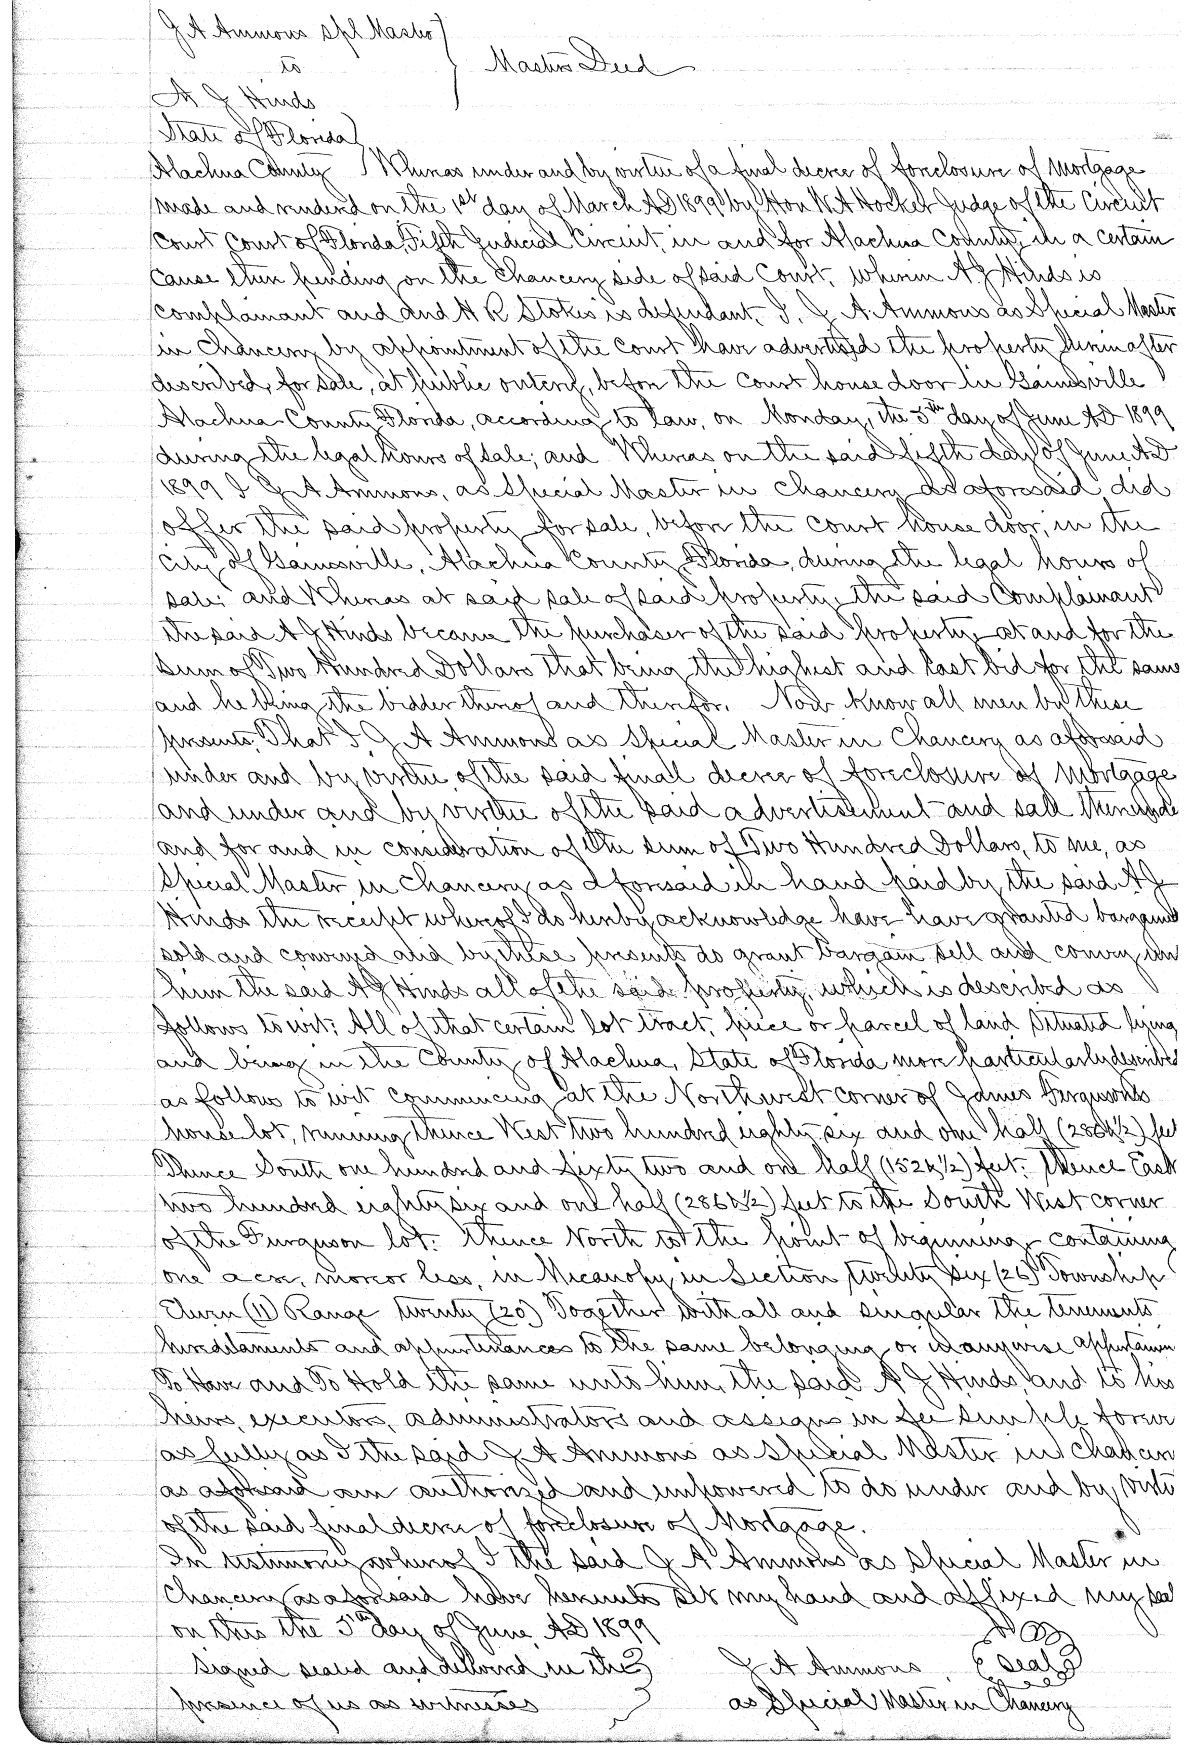 J A Ammons spl Master
to
Masters Deed
A J Hinds
State of Florida
Alachua County Whereas under and by virtue of a final decree of foreclosure of Mortgage
made and rendered on the 1st day of March AD 1899 by Hon W A Hocker Judge of the Circuit
Court Court of Florida, Fifth Judicial Circuit, in and for Alachua County, in a certain
cause then pending on the Chancery side of said Court, wherein A J Hinds is
complainant and and H R Stokes is defendant, I, J A Ammons as Special Master
in Chancery by appointment of the Court have advertised the property hereinafter
described, for sale, at public outcry, before the Court house door in Gainesville
Alachua County Florida, according to law, on Monday, the 5th day of June AD 1899
during the legal hours of sale; and Whereas on the said fifth day of June AD
1899 I J A Ammons, as Special Master in Chancery as aforesaid did
offer the said property for sale, before the court house door, in the
city of Gainesville, Alachua County Florida, during the legal hours of
sale; and Whereas at said sale of said property, the said Complainant
the said A J Hinds became the purchaser of the said property, at and for the
sum of Two Hundred Dollars that being the highest and last bid for the same
and he being the bidder thereof and therefor. Now know all men by these
presents, That I, J A Ammons as Special Master in Chancery as aforesaid
under and by virtue of the said final decree of foreclosure of Mortgage
and under and by virtue of the said advertisement and sale thereunde
and for and in consideration of the sum of Two Hundred Dollars, to me, as
Special Master in Chancery as aforesaid in hand paid by the said A J
Hinds the receipt whereof I do hereby acknowledge have have granted bargained
sold and conveyed and by these presents do grant bargain sell and convey un
him the said A J Hinds all of the said property, which is described as
follows to wit: All of that certain lot tract, piece or parcel of land situated lying
and being in the County of Alachua, State of Florida more particularly described
as follows to wit commencing at the Northwest corner of James Fergusons
house lot, running thence West two hundred eighty six and one half (286 1/2) feet
Thence South one hundred and fifty two and one half (152 1/2) feet: Thence East
two hundred eighty six and one half (286 1/2) feet to the South West corner
of the Furguson lot: Thence North to the point of beginning, containing
one acre, more or less, in Micanopy in Section twenty six (26) Township
Eleven (11) Range twenty (20) Together with all and singular the tenements
hereditaments and appurtenances to the same belonging or in anywise appertainin
To Have and To Hold the same unto him, the said A J Hinds, and to his
heirs, executors, administrators and assigns in fee simple forever
as fully as I the said J A Ammons as Special Master in Chancery
as aforesaid am authorized and empowered to do under and by virtue
of the said final decree of foreclosure of Mortgage.
In testimony whereof I the said J A Ammons as Special Master in
Chancery as aforesaid have hereunto set my hand and affixed my seal
on this the 5th day of June AD 1899
Signed sealed and delivered in the J A Ammons (Seal)
presence of us as witnesses as Special Master in Chancery